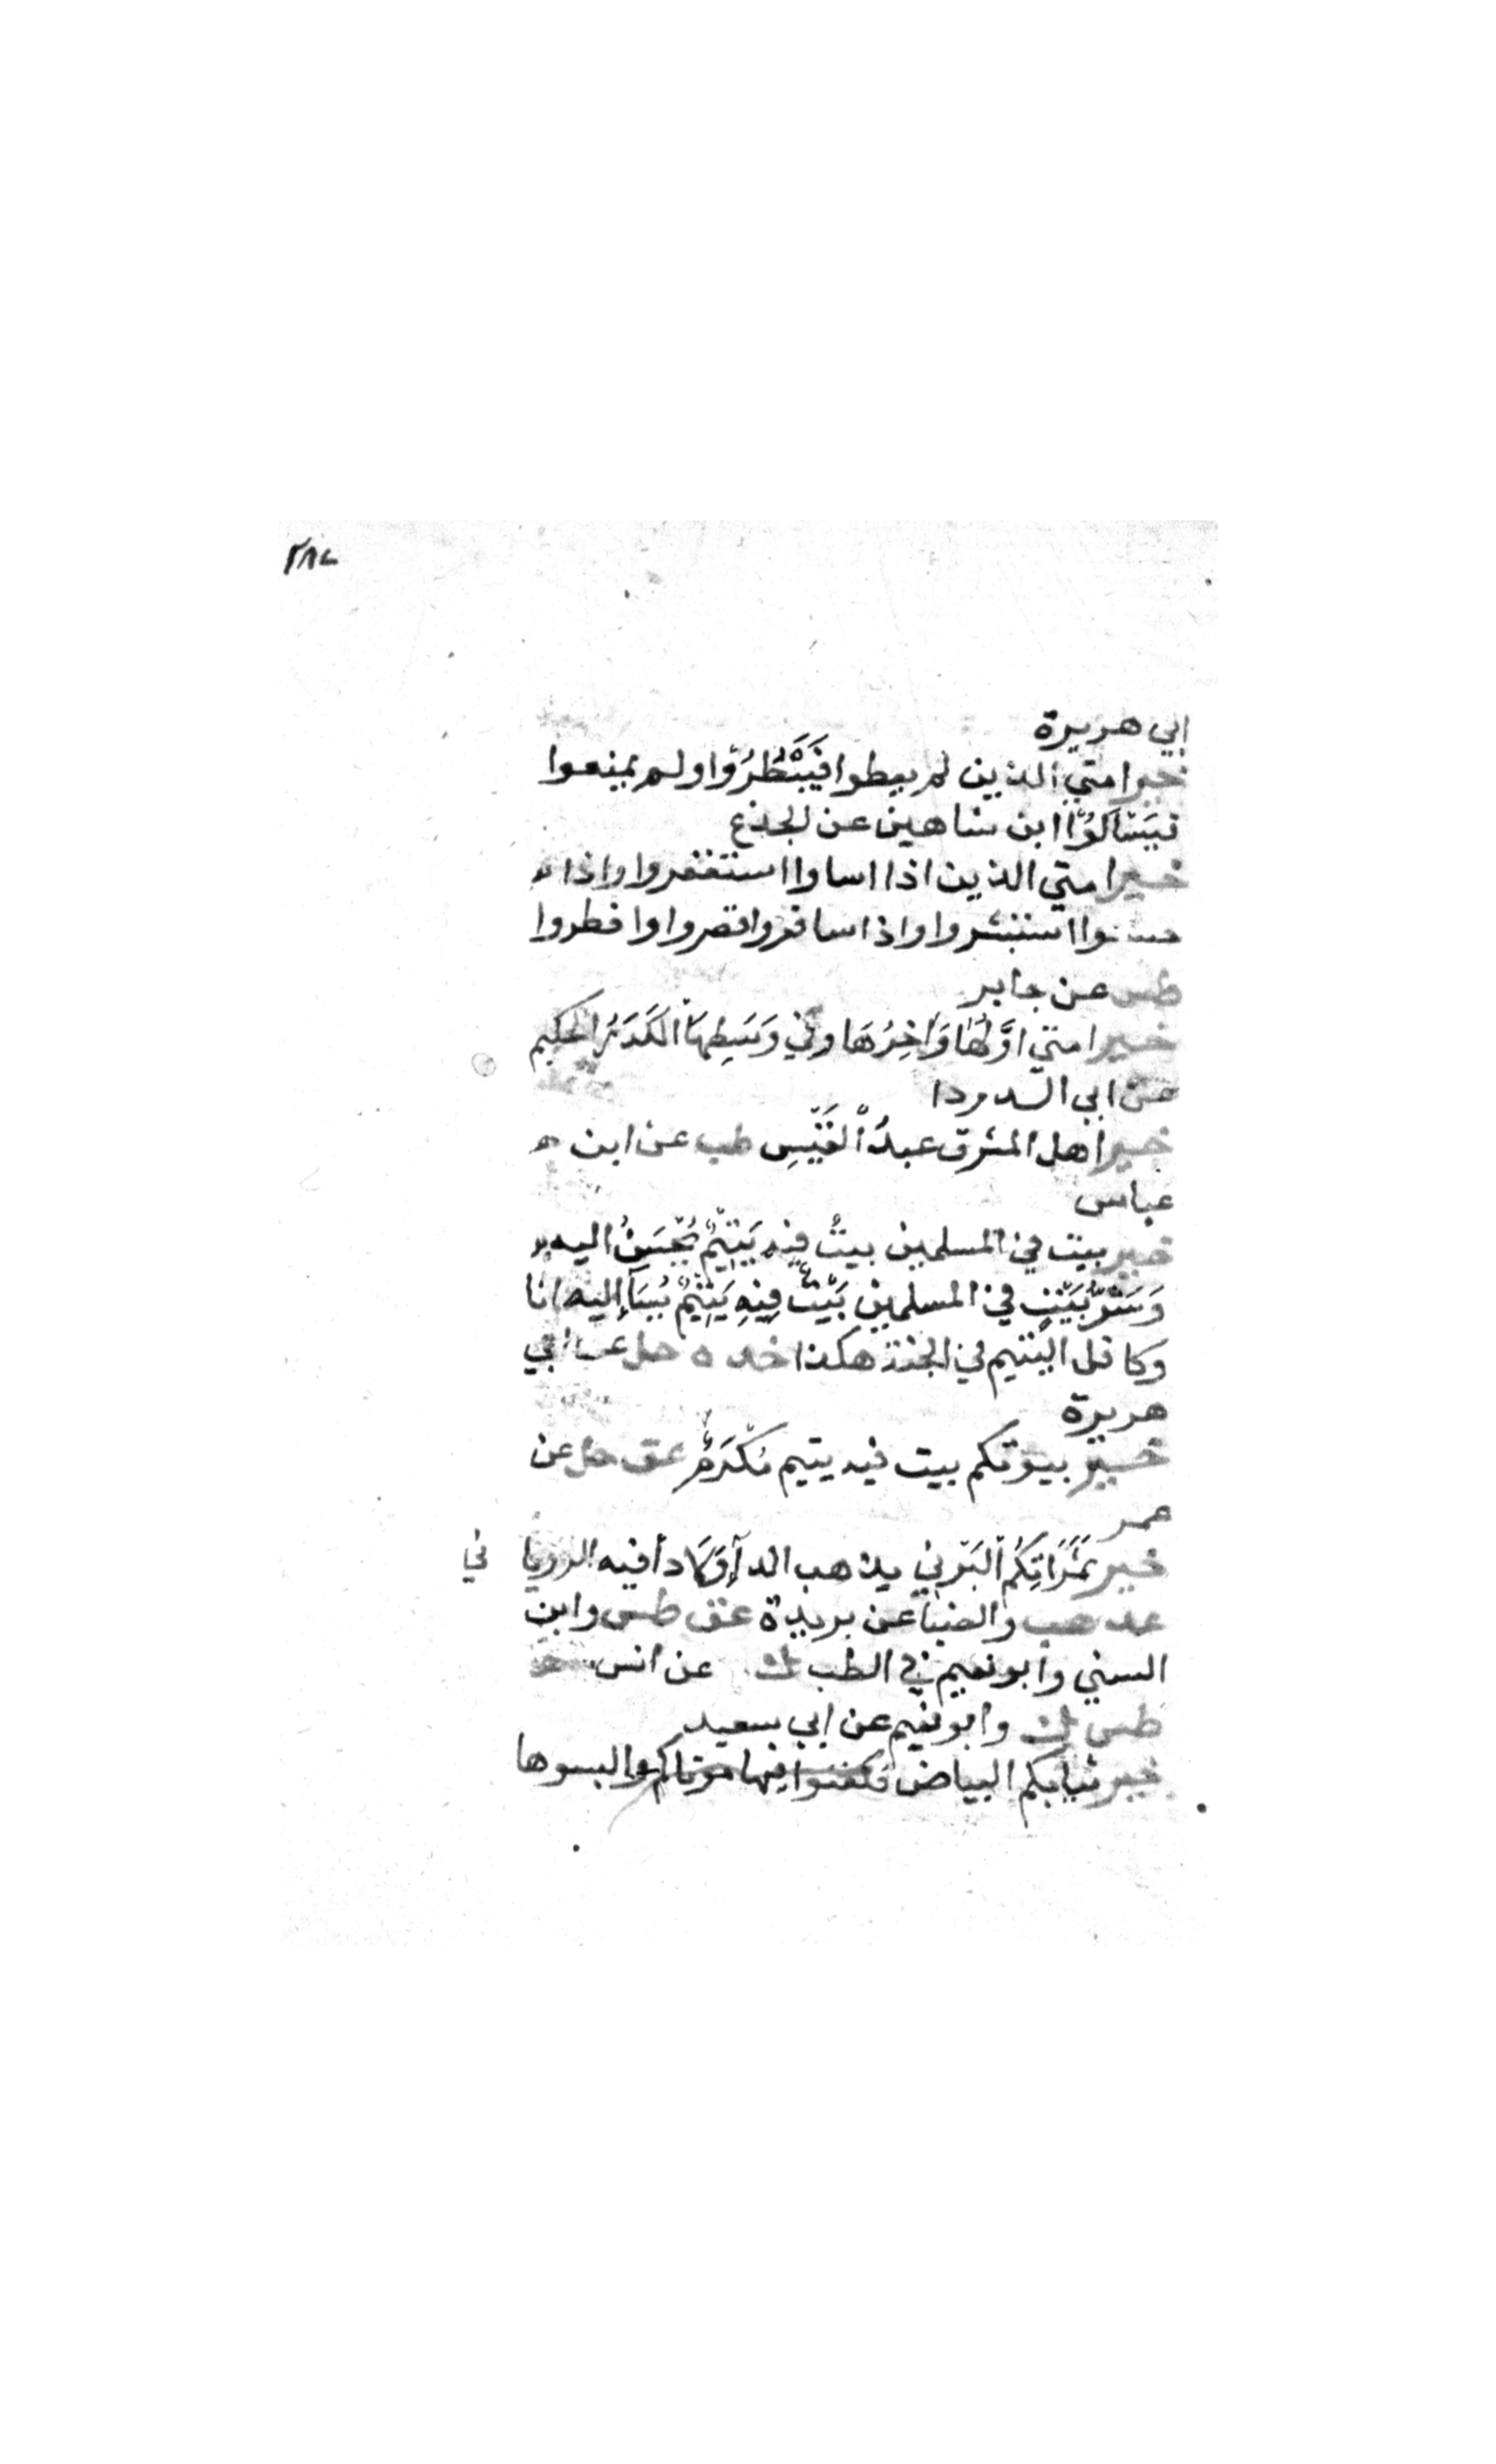 ٢٨٧
ابي هريرة
خير امتي الذين لم يعطوا فَيَبْطُرُوْا ولم يمنعوا
فيَسْاَلُوْا ابن شاهين عن الجذع
خير امتي الذين اذا اساوا استغفروا واذا
حسنوا استبشروا واذا سافروا قصروا وافطروا
طس عن جابر
خير امتي اوَّلُهَا وَاٰخِرُهَا وفي وَسَطِهَا الكَدَرُ الحكيم
عن ابي الدردا
خير اهل المشرق عبدُ الْقَيْسِ طب عن ابن
عباس
خير بيت في المسلمين بيتٌ فيه يَتِيْمٌ يُحْسَنُ اليه
وَشَرُّ بَيْتٍ في المسلمين بَيْتٌ فِيْهِ يَتِيْمٌ يُسَآءُ اليه انا
وكافل اليتيم في الجنة هكذا خد ه حل عن ابي
هريرة
خير بيوتكم بيت فيه يتيم مُكْرَمٌ عق حل عن
عمر
خير تَمَرَاتِكُمُ الْبَرْنِي يذهب الدآءَ وَلَا دآ فيه الرويا ني
عد هب والضيا عن بريدة عق طس وابن
السني وابو نعيم في الطب ك عن انس
طس ك وابو نعيم عن ابي سعيد
خير ثيابكم البياض فكفنوا فيها موتاكم والبسوها